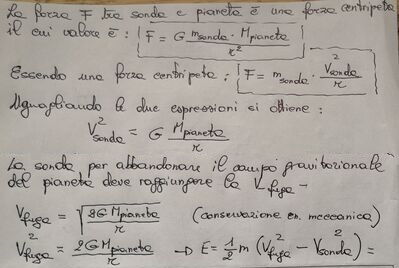 La forza F tra sonda e pianeta è una forza centripeta
il cui valore è: F = G m_sonda · M_pianeta / r²
Essendo una forza centripeta: F = m_sonda · V²_sonda / r
Uguagliando le due espressioni si ottiene:
V²_sonda = G M_pianeta / r
La sonda per abbandonare il campo gravitazionale
del pianeta deve raggiungere la V_fuga -
V_fuga = √(2GM_pianeta / r) (conservazione en. meccanica)
V²_fuga = 2GM_pianeta / r → E = 1/2 m (V²_fuga - V²_sonda) =